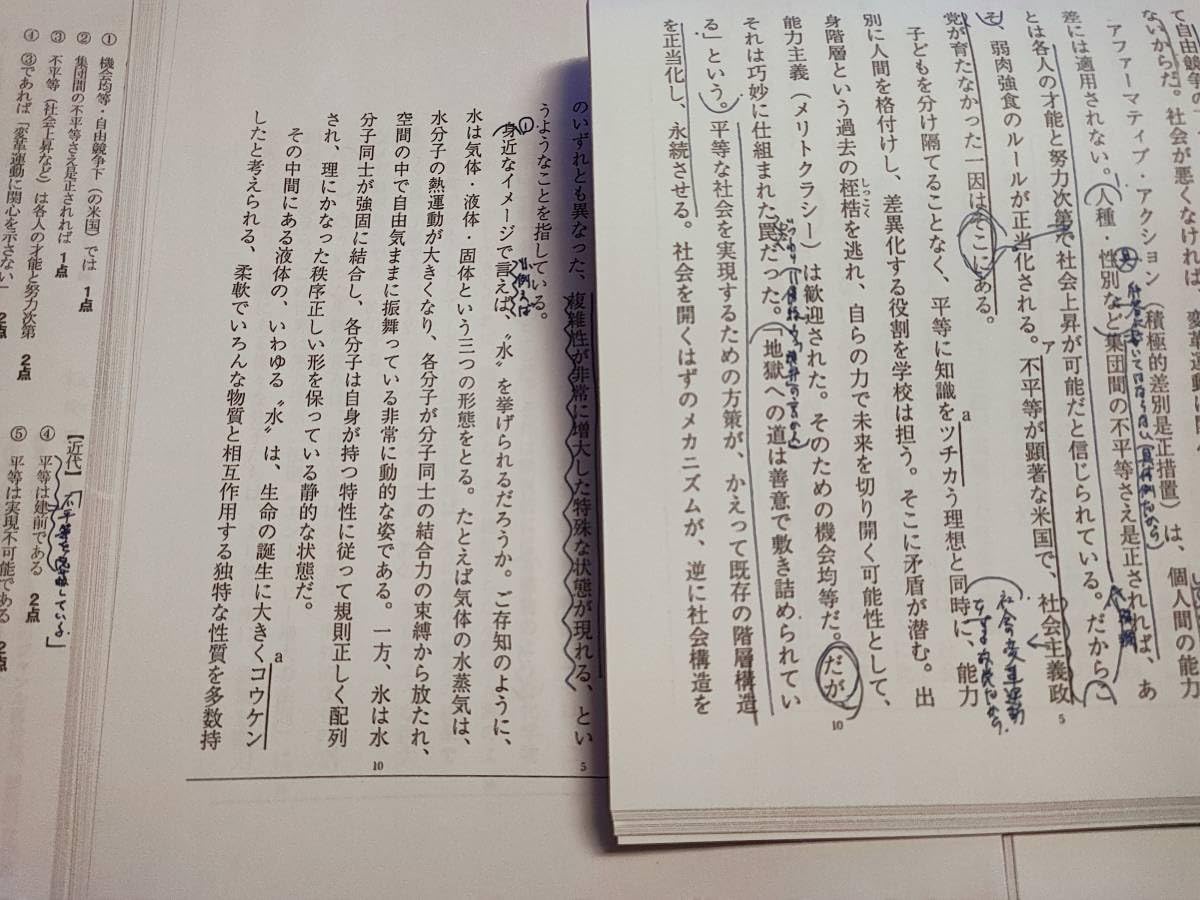 て自由競争の
ないからだ。社会が悪くなければ、変革運動に
アファーマティブ・アクション（積極的差別是正措置）は、個人間の能力
差には適用されない。人種・性別など集団間の不平等さえ是正されれば、あ
とは各人の才能と努力次第で社会上昇が可能だと信じられている。だから
そ、弱肉強食のルールが正当化される。不平等が顕著な米国で、社会主義政
党が育たなかった一因はそこにある。
子どもを分け隔てることなく、平等に知識をツチカう理想と同時に、能力
別に人間を格付けし、差異化する役割を学校は担う。そこに矛盾が潜む。出
身階層という過去の桎梏を逃れ、自らの力で未来を切り開く可能性として、
しっこく
能力主義（メリトクラシー）は歓迎された。そのための機会均等だ。だが、
それは巧妙に仕組まれた罠だった。「地獄への道は善意で敷き詰められてい
る」という。平等な社会を実現するための方策が、かえって既存の階層構造
を正当化し、永続させる。社会を開くはずのメカニズムが、逆に社会構造を
ア
a
5
10
具
社会の変革運動
のいずれとも異なった、複雑性が非常に増大した特殊な状態が現れる、とい
うようなことを指している。
身近なイメージで言えば、〝水〟を挙げられるだろうか。ご存知のように、
例えば
水は気体・液体・固体という三つの形態をとる。たとえば気体の水蒸気は、
水分子の熱運動が大きくなり、各分子が分子同士の結合力の束縛から放たれ、
空間の中で自由気ままに振舞っている非常に動的な姿である。一方、氷は水
分子同士が強固に結合し、各分子は自身が持つ特性に従って規則正しく配列
され、理にかなった秩序正しい形を保っている静的な状態だ。
その中間にある液体の、いわゆる〝水〟は、生命の誕生に大きくコウケン
したと考えられる、柔軟でいろんな物質と相互作用する独特な性質を多数持
a
5
10
① 機会均等・自由競争下（の米国）では 1点
② 集団間の不平等さえ是正されれば 1点
③ 不平等（社会上昇など）は各人の才能と努力次第 2点
④ ③であれば「変革運動に関心を示さない」 2点
【近代】
④ 平等は建前である 2点
⑤ 平等は実現不可能である 2点